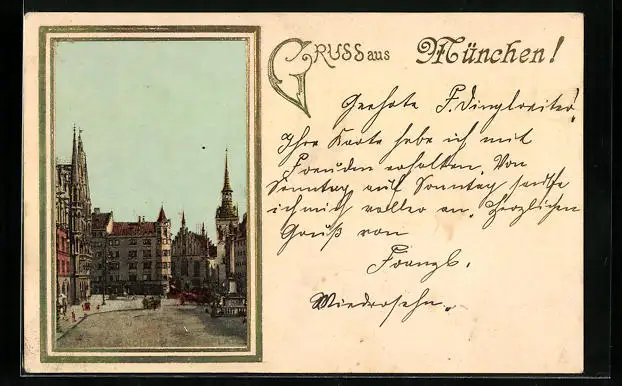 Gruss aus München!
Geehrte F. Dinglreiter!
Ihre Karte habe ich mit
Freuden erhalten. Von
Sonntag auf Sonntag
ich mich an. Herzlichen
Gruß von
Franzl.
Wiedersehn.